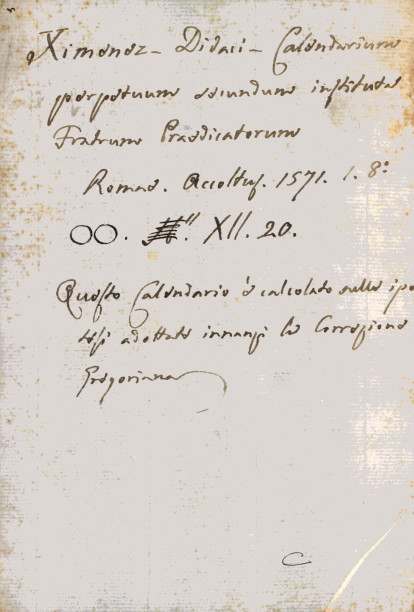 Ximenez - Didaci - Calendarium
perpetuum secundum instituta
Fratrum Praedicatorum
Romae. Accoltus. 1571. 1. 8º
OO. XII. 20.
Questo Calendario è calcolato sulle ipo
tesi adottate innanzi la Correzione
Gregoriana
C